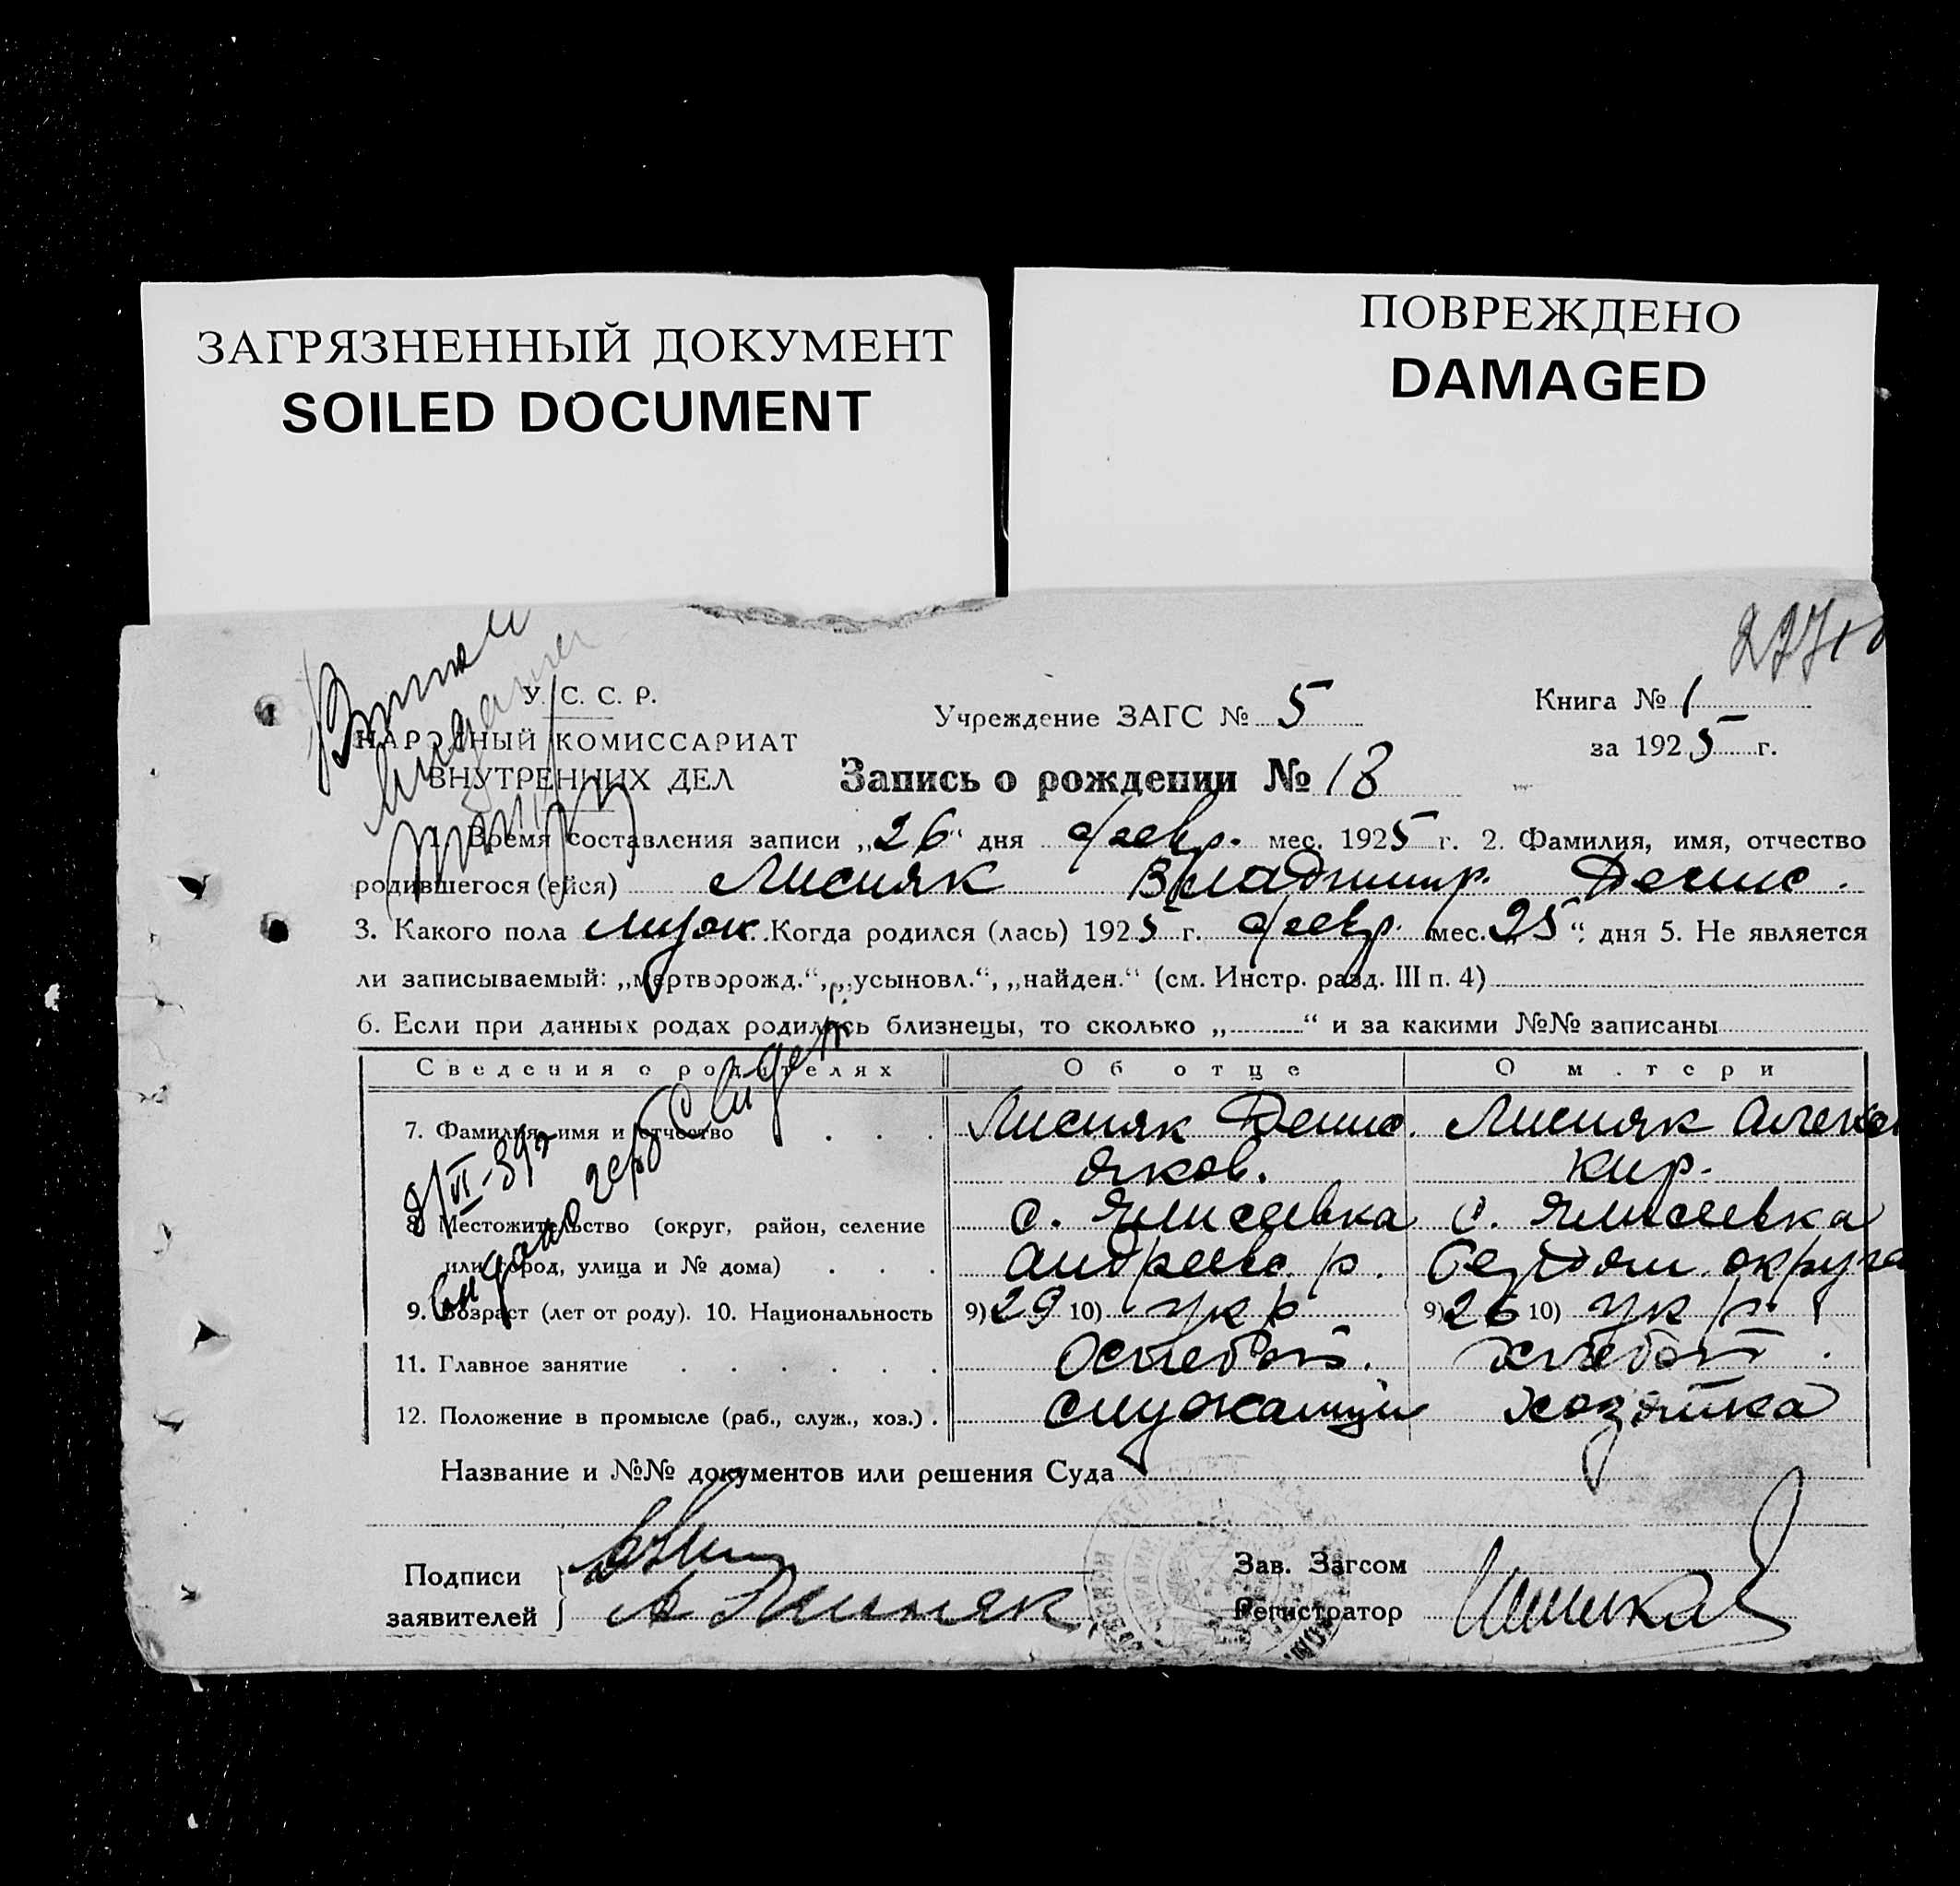 ЗАГРЯЗНЕННЫЙ ДОКУМЕНТ
SOILED DOCUMENT
ПОВРЕЖДЕНО
DAMAGED
У. С. С. Р.
НАРОДНЫЙ КОМИССАРИАТ
ВНУТРЕННИХ ДЕЛ
Учреждение ЗАГС № 5
Книга № 1
за 1925 г.
Запись о рождении № 18
1. Время составления записи „26“ дня февр. мес. 1925 г. 2. Фамилия, имя, отчество
родившегося (ейся) Лисняк Владимир Денис.
3. Какого пола муж. Когда родился (лась) 1925 г. февр. мес. „25“ дня 5. Не является
ли записываемый: „мертворожд.“, „усыновл.“, „найден.“ (см. Инстр. разд. III п. 4)
6. Если при данных родах родились близнецы, то сколько „ “ и за какими №№ записаны
Сведения о родителях Об отце О матери
7. Фамилия, имя и отчество Лисняк Денис. Лисняк Алекса
Яков. Кир.
8. Местожительство (округ, район, селение с. Елисеевка с. Елисеевка
или город, улица и № дома) Андреевс. р. Бердян. округа
9. Возраст (лет от роду). 10. Национальность 9) 29 10) укр 9) 26 10) укр.
11. Главное занятие хлебоп.
12. Положение в промысле (раб., служ., хоз.) служащий хозяйка
Выдано герб свидет
Название и №№ документов или решения Суда
Подписи
заявителей
А Лисняк
Зав. Загсом
Регистратор